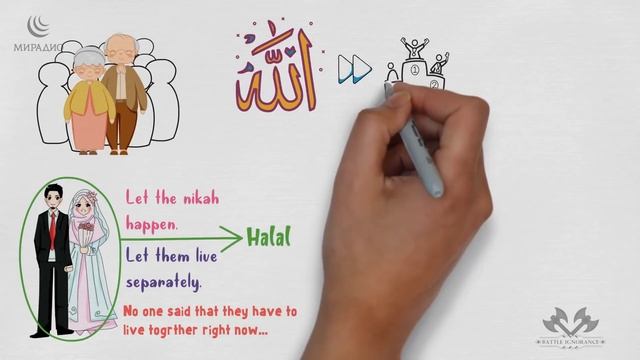 МИРАДИО
الله
1
2
Let the nikah
happen.
Halal
Let them live
separately.
No one said that they have to
live togrther right now...
BATTLE IGNORANCE